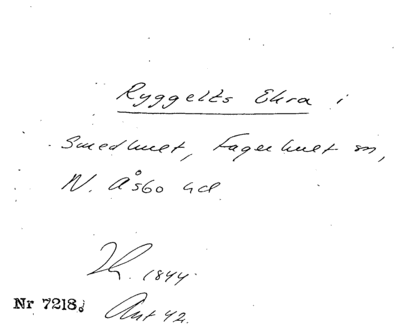 Ryggelts Ekra i
Smedhult, Fagerhult sn,
N. Åsbo hd.
1844.
Nr 7218.
Ant 42.